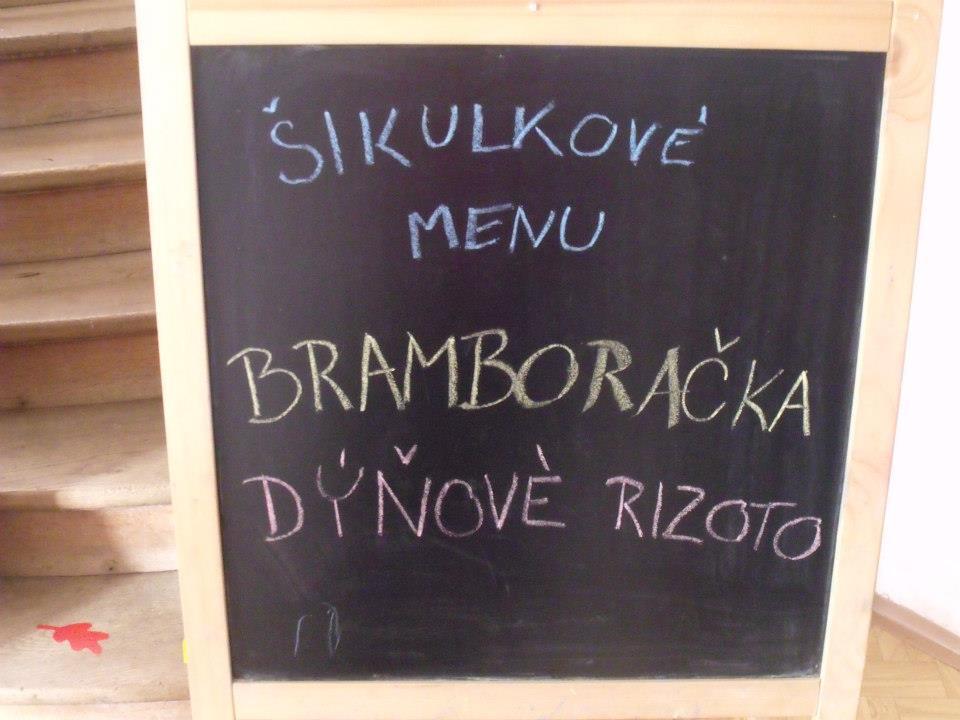 ŠIKULKOVÉ
MENU
BRAMBORAČKA
DÝŇOVÉ RIZOTO